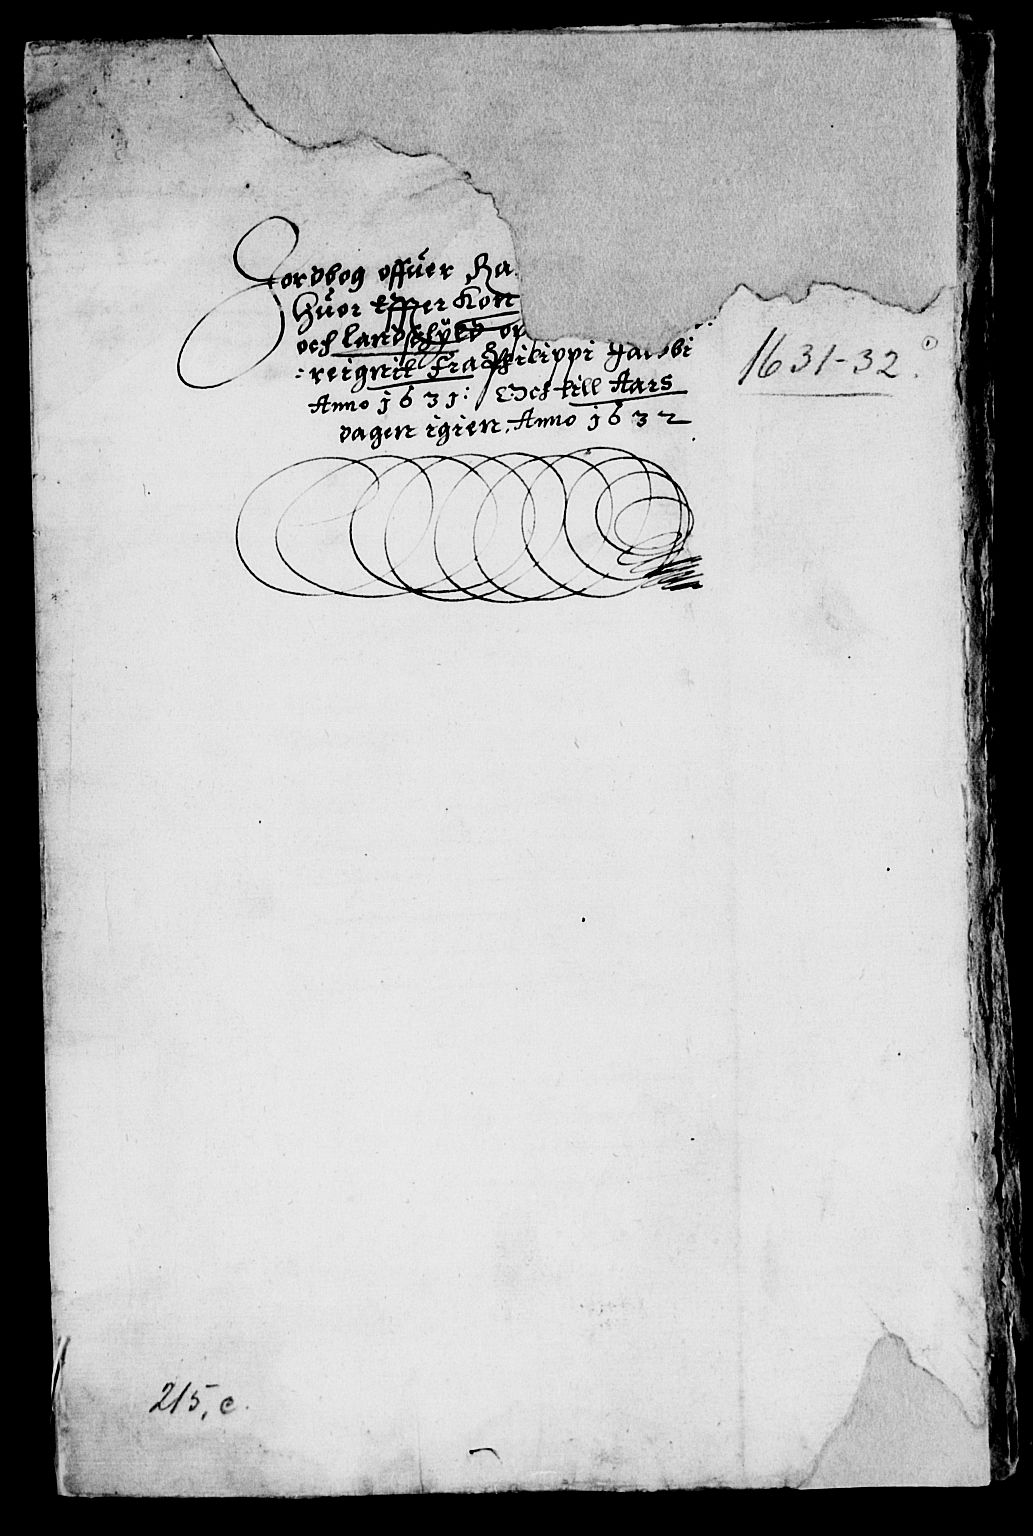 Jordbog offuer Ra
Huor effter Korn
och Landschyld op
:reignit Fra Philippi Jacobi
Anno 1631: Och till Aars
dagen igien, Anno 1632
1631-32.
215, c.